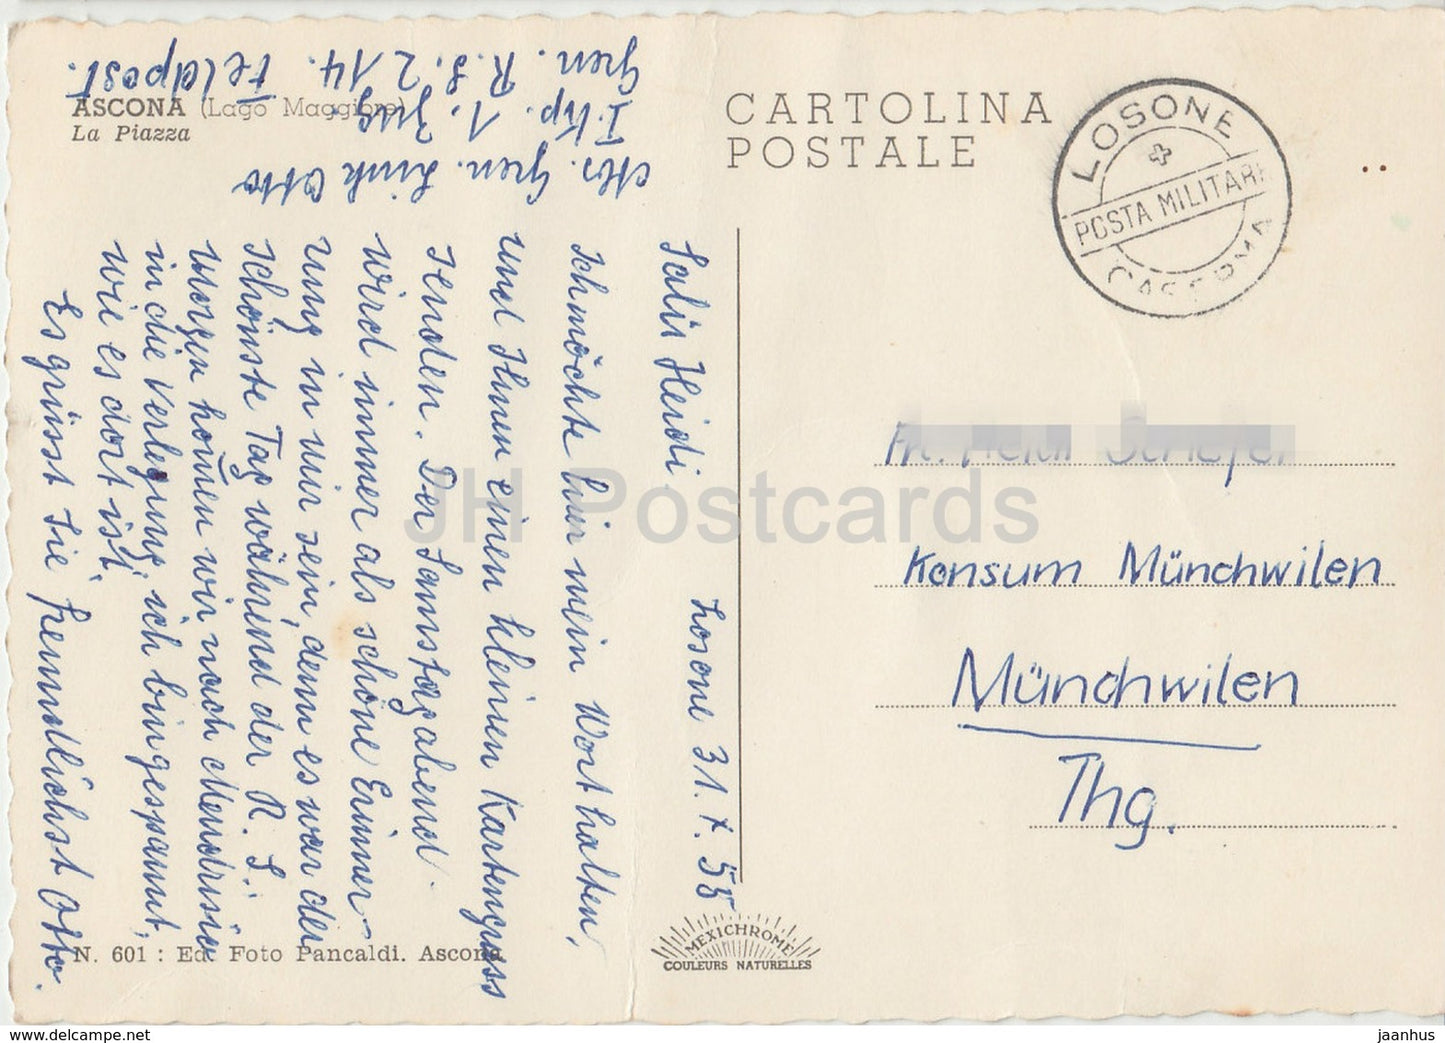 ASCONA (Lago Maggiore)
La Piazza
CARTOLINA
POSTALE
LOSONE
POSTA MILITARE
CASERMA
Mr. Gren. Link Otto
I. Kp. 1. Zug
Gren. R.S. 214. Feldpost.
Losone 31. X. 58
Salü Heidi
schmöchte hier mein Wort halten,
und Ihnen einen kleinen Kartengruss
senden. Der Samstagabend
wird immer als schöne Erinner-
ung in mir sein, denn es war der
schönste Tag während der R. S.
Morgen kommen wir nach Mendrisio
in die Verlegung, ich bin gespannt,
wie es dort ist,
Es grüsst Sie freundlichst Otto.
Konsum Münchwilen
Münchwilen
Thg.
N. 601 : Ed. Foto Pancaldi. Ascona
MEXICHROME
COULEURS NATURELLES
JH Postcards
www.delcampe.net
jaanhus